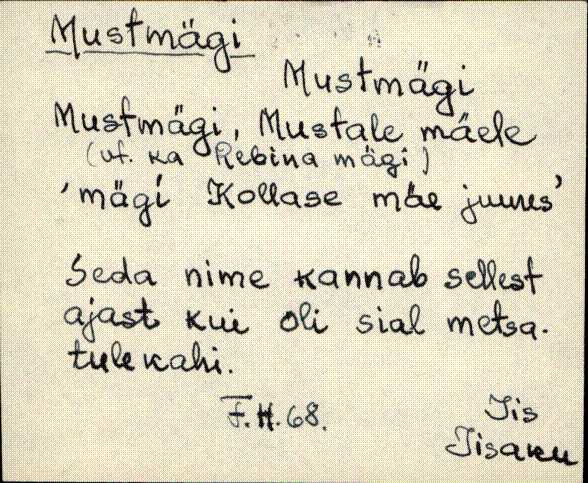 Mustmägi
Mustmägi
Mustmägi, Mustale mäele
(vt. ka Rebina mägi)
'mägi Kollase mäe juures'
Seda nime kannab sellest
ajast kui oli sial metsa-
tulekahi.
F.H. 68.
Iis
Iisaku